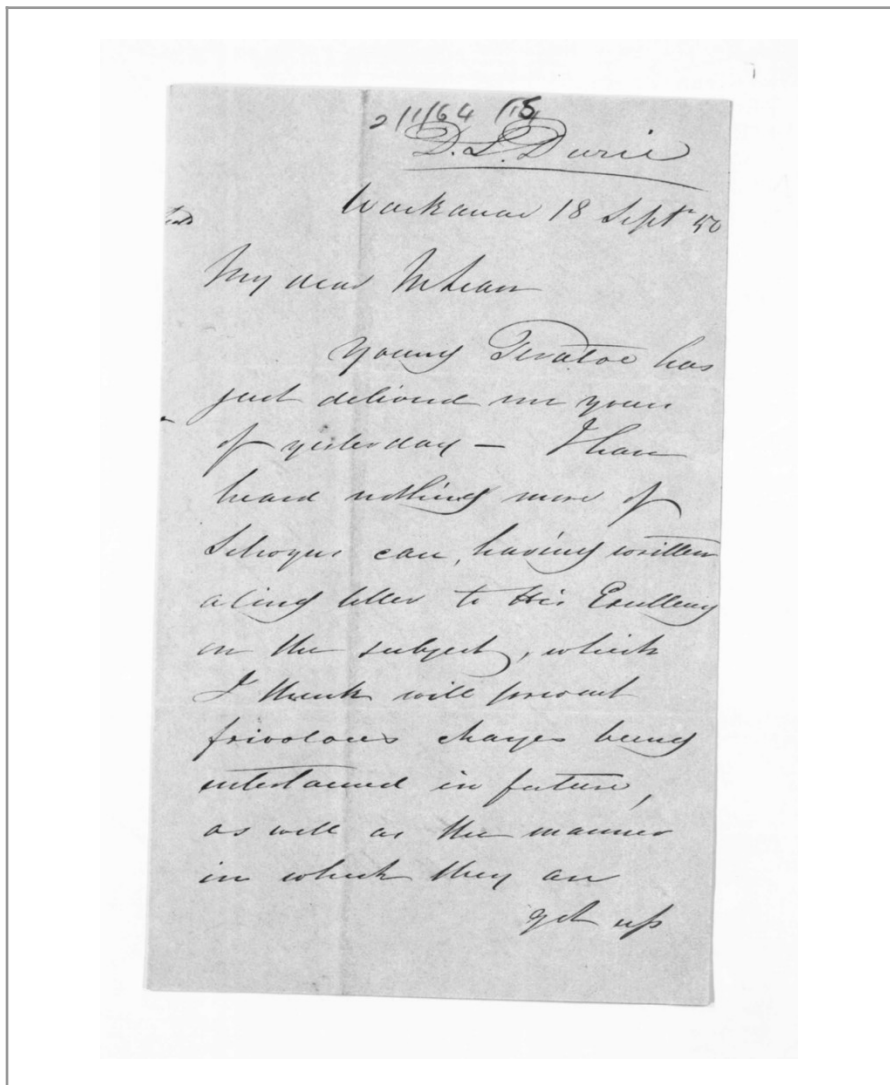 D. S. Durie
18 Sept 50
My dear McLean
young has
just delivered me yours
of yesterday – I have
heard nothing more of
case, having written
a long letter to His Excellency
on the subject, which
I think will prevent
frivolous charges being
entertained in future,
as well as the manner
in which they are
get up